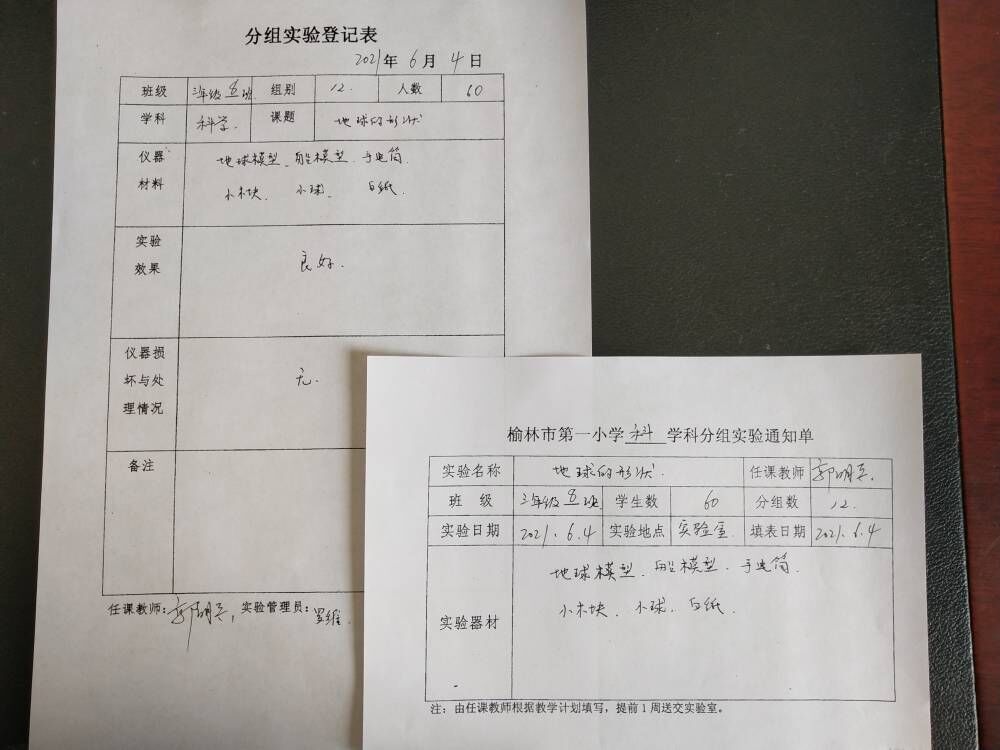 分组实验登记表
2021年 6月 4日
班级 三年级 8 班 组别 12. 人数 60
学科 科学. 课题 地球的形状
仪器材料 地球模型、船模型、手电筒.
小木块、小球、白纸.
实验效果 良好.
仪器损坏与处理情况 无.
备注
任课教师: 实验管理员: 罗维
榆林市第一小学 科 学科分组实验通知单
实验名称 地球的形状. 任课教师
班 级 三年级 8 班 学生数 60 分组数 12.
实验日期 2021.6.4 实验地点 实验室. 填表日期 2021.6.4
实验器材 地球模型、船模型、手电筒.
小木块、小球、白纸.
注:由任课教师根据教学计划填写,提前1周送交实验室。